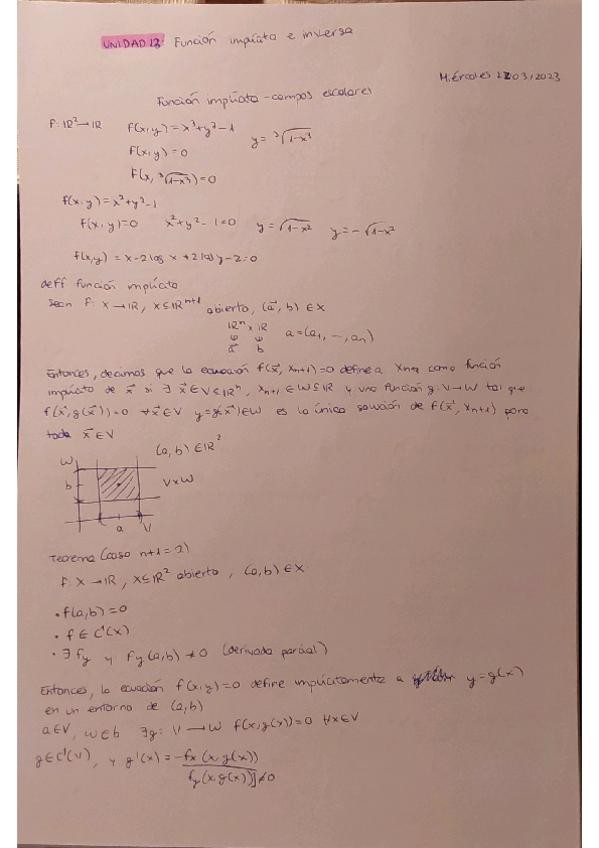 UNIDAD 13: Función implícita e inversa
Miércoles 22/03/2023
Función implícita - campos escalares
f: ℝ² → ℝ f(x,y) = x³+y³-1 y = ³√(1-x³)
f(x,y) = 0
f(x, ³√(1-x³)) = 0
f(x,y) = x²+y²-1
f(x,y)=0 x²+y²-1=0 y = √(1-x²) y = -√(1-x²)
f(x,y) = x-2log x +2log y-2=0
deff función implícita
Sean f: X → ℝ, X ⊆ ℝⁿ⁺¹ abierto, (a⃗, b) ∈ X
ℝⁿ × ℝ
a⃗ b a = (a₁, ..., aₙ)
Entonces, decimos que la ecuación f(x⃗, xₙ₊₁)=0 define a xₙ₊₁ como función
implícita de x⃗ si ∃ x⃗ ∈ V ⊆ ℝⁿ, xₙ₊₁ ∈ W ⊆ ℝ y una función g: V → W tal que
f(x⃗, g(x⃗))=0 ∀x⃗ ∈ V y=g(x⃗) ∈ W es la única solución de f(x⃗, xₙ₊₁) para
toda x⃗ ∈ V
W (a,b) ∈ ℝ²
b V×W
a V
Teorema (caso n+1=2)
f: X → ℝ, X ⊆ ℝ² abierto, (a,b) ∈ X
· f(a,b) = 0
· f ∈ C¹(X)
· ∃ fy y fy(a,b) ≠ 0 (derivada parcial)
Entonces, la ecuación f(x,y)=0 define implícitamente a y=g(x)
en un entorno de (a,b)
a∈V, W∋b ∃g: V → W f(x,g(x))=0 ∀x∈V
g∈C¹(V), y g'(x) = -fx(x,g(x))
fy(x,g(x))]≠0